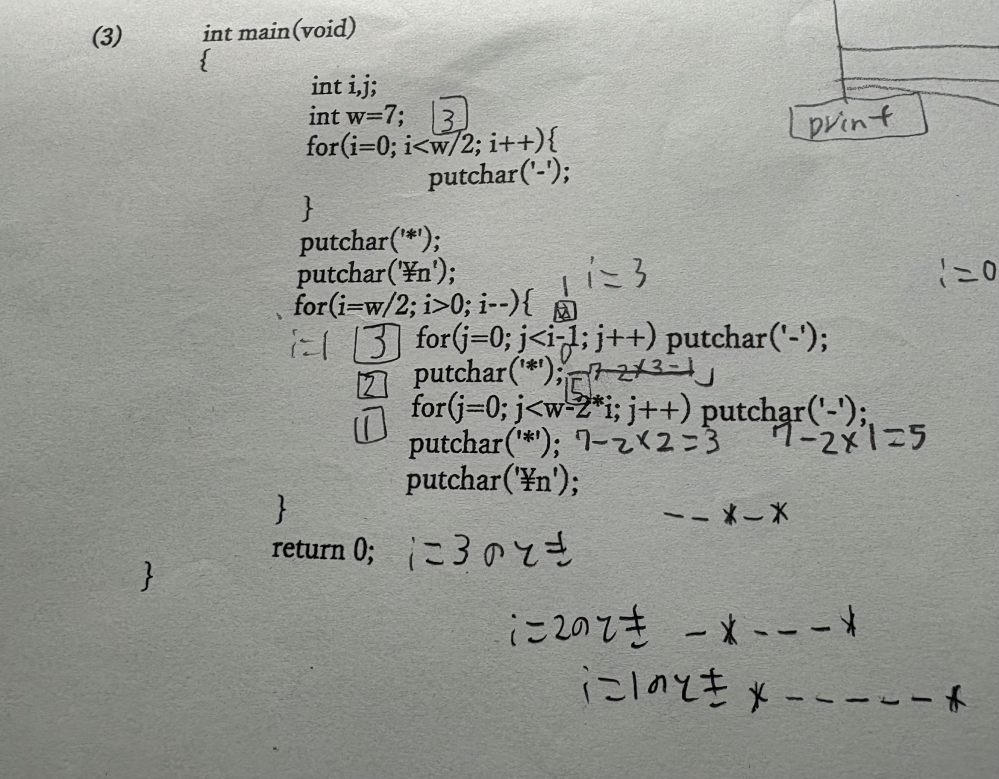 (3) int main(void)
{
int i,j;
int w=7; 3
for(i=0; i<w/2; i++){
putchar('-');
}
putchar('*');
putchar('¥n');
for(i=w/2; i>0; i--){
for(j=0; j<i-1; j++) putchar('-');
putchar('*');
for(j=0; j<w-2*i; j++) putchar('-');
putchar('*');
putchar('¥n');
}
return 0;
}
print
i=3
i=0
i=1
3
2
1
0
5
7-2×3-1
7-2×2=3
7-2×1=5
--*-*
i=3のとき
i=2のとき -*---*
i=1のとき *-----*